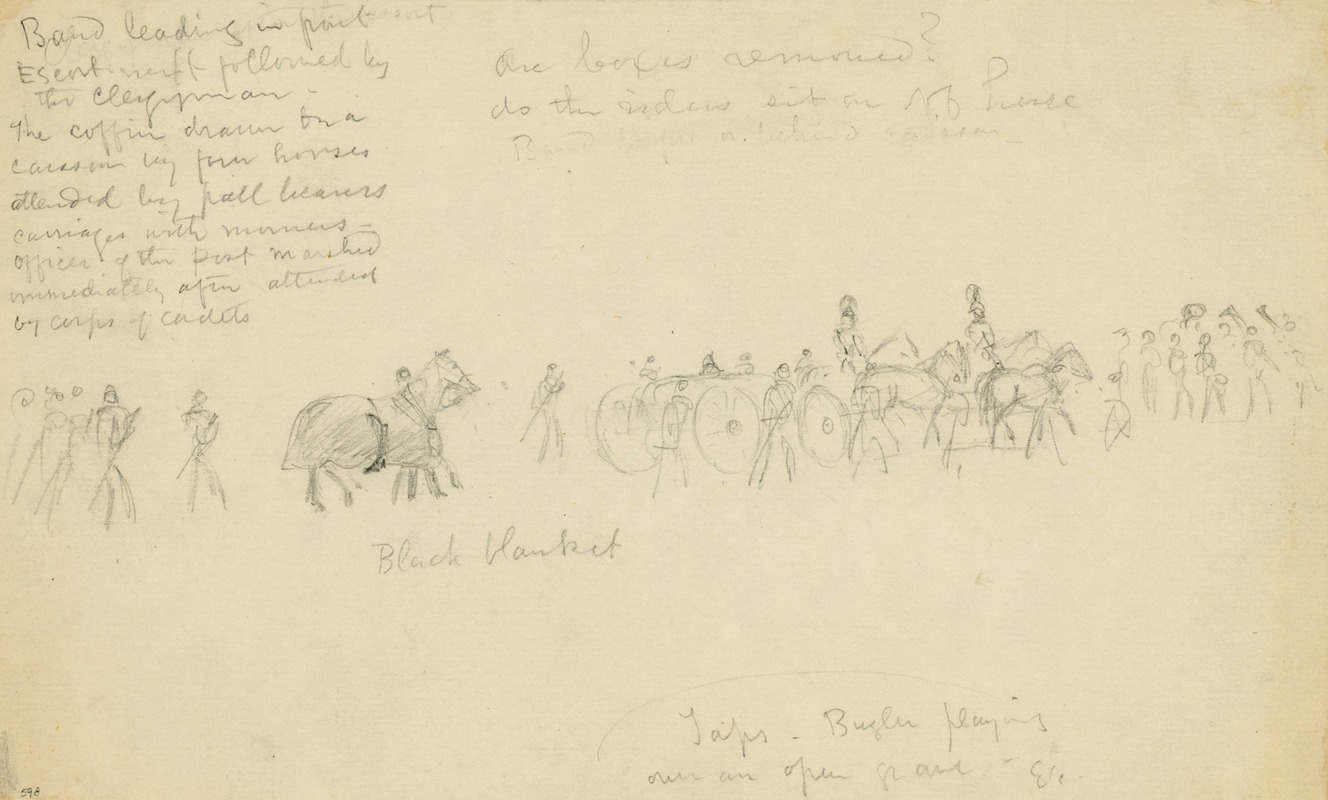 Band leading in front
Escort next followed by
the clergyman -
The coffin drawn on a
caisson by four horses
attended by pall bearers
carriages with mourners -
officers of the post marshed
immediately after attended
by corps of cadets
are boxes removed?
do the riders sit on off horse
Band before or behind caisson
Black blanket
Taps - Bugler playing
over an open grave - Etc.
598